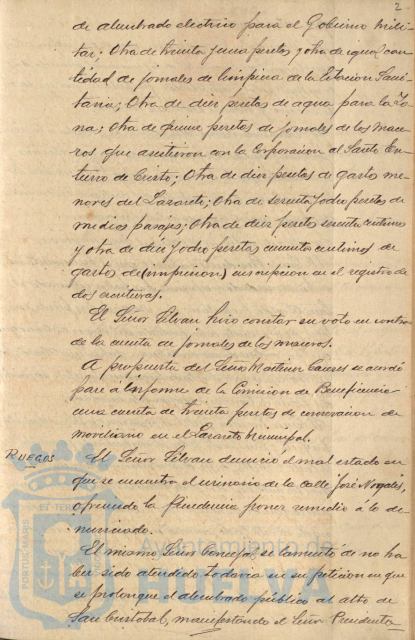 2
de alumbrado eléctrico para el Gobierno Mili-
tar; Otra de treinta y una pesetas y otra de igual can-
tidad de jornales de limpieza de la Estacion Sani-
taria; Otra de diez pesetas de agua para la Zo-
na; Otra de quince pesetas de jornales de los mace-
ros que asistieron con la Corporacion al Santo En-
tierro de Cristo; Otra de diez pesetas de gastos me-
nores del Lazareto; Otra de sesenta y ocho pesetas de
medios pasajes; Otra de diez pesetas sesenta centimos
y otra de diez y ocho pesetas cincuenta centimos de
gastos de inscripcion en el registro de
dos escrituras.
El Señor Silvan hizo constar su voto en contra
de la cuenta de jornales de los maceros.
A propuesta del Señor Martinez se acordó
pase á informe de la Comision de Beneficencia
una cuenta de treinta pesetas de renovacion de
moviliario en el Lazareto Municipal.
RUEGOS
El Señor Silvan denunció el mal estado en
que se encuentra el urinario de la calle José Nogales,
ofreciendo la Presidencia poner remedio á lo de-
nunciado.
El mismo Señor Concejal se lamentó de no ha-
ber sido atendido todavia en su peticion en que
se prolongue el alumbrado público al alto de
San Cristobal, manifestando el Señor Presidente
PORTUS MARIS ET TERR
Ayuntamiento de